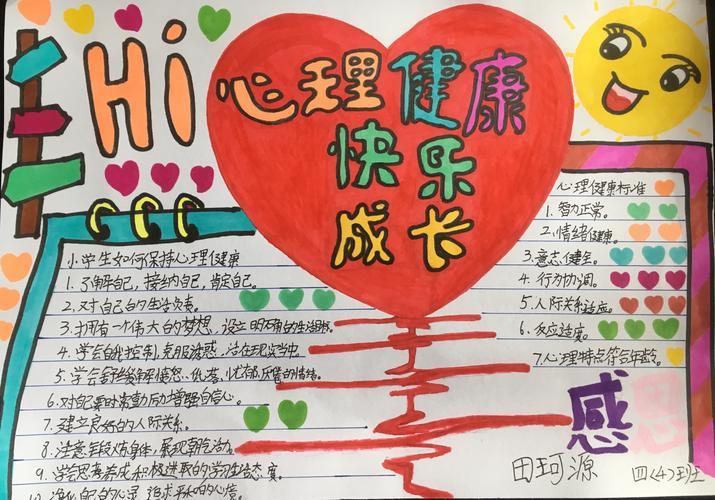 Hi
心理健康
快乐
成长
小学生如何保持心理健康
1. 了解自己，接纳自己，肯定自己。
2. 对自己的生活负责。
3. 拥有一个伟大的梦想，设立明确的生活目标
4. 学会自我控制，克服诱惑，活在现实当中
5. 学会舒缓解愤怒、低落、忧郁、反感的情绪。
6. 对自己要时常鼓励增强自信心。
7. 建立良好的人际关系。
8. 注意锻炼身体，展现朝气活力
9. 学会思考养成积极进取的学习生活态度。
10. 净化自己的心灵，追求平和的心情
心理健康标准
1. 智力正常。
2. 情绪健康。
3. 意志健全。
4. 行为协调。
5. 人际关系适应。
6. 反应适度。
7. 心理特点符合年龄。
感恩
田珂源 四(4)班